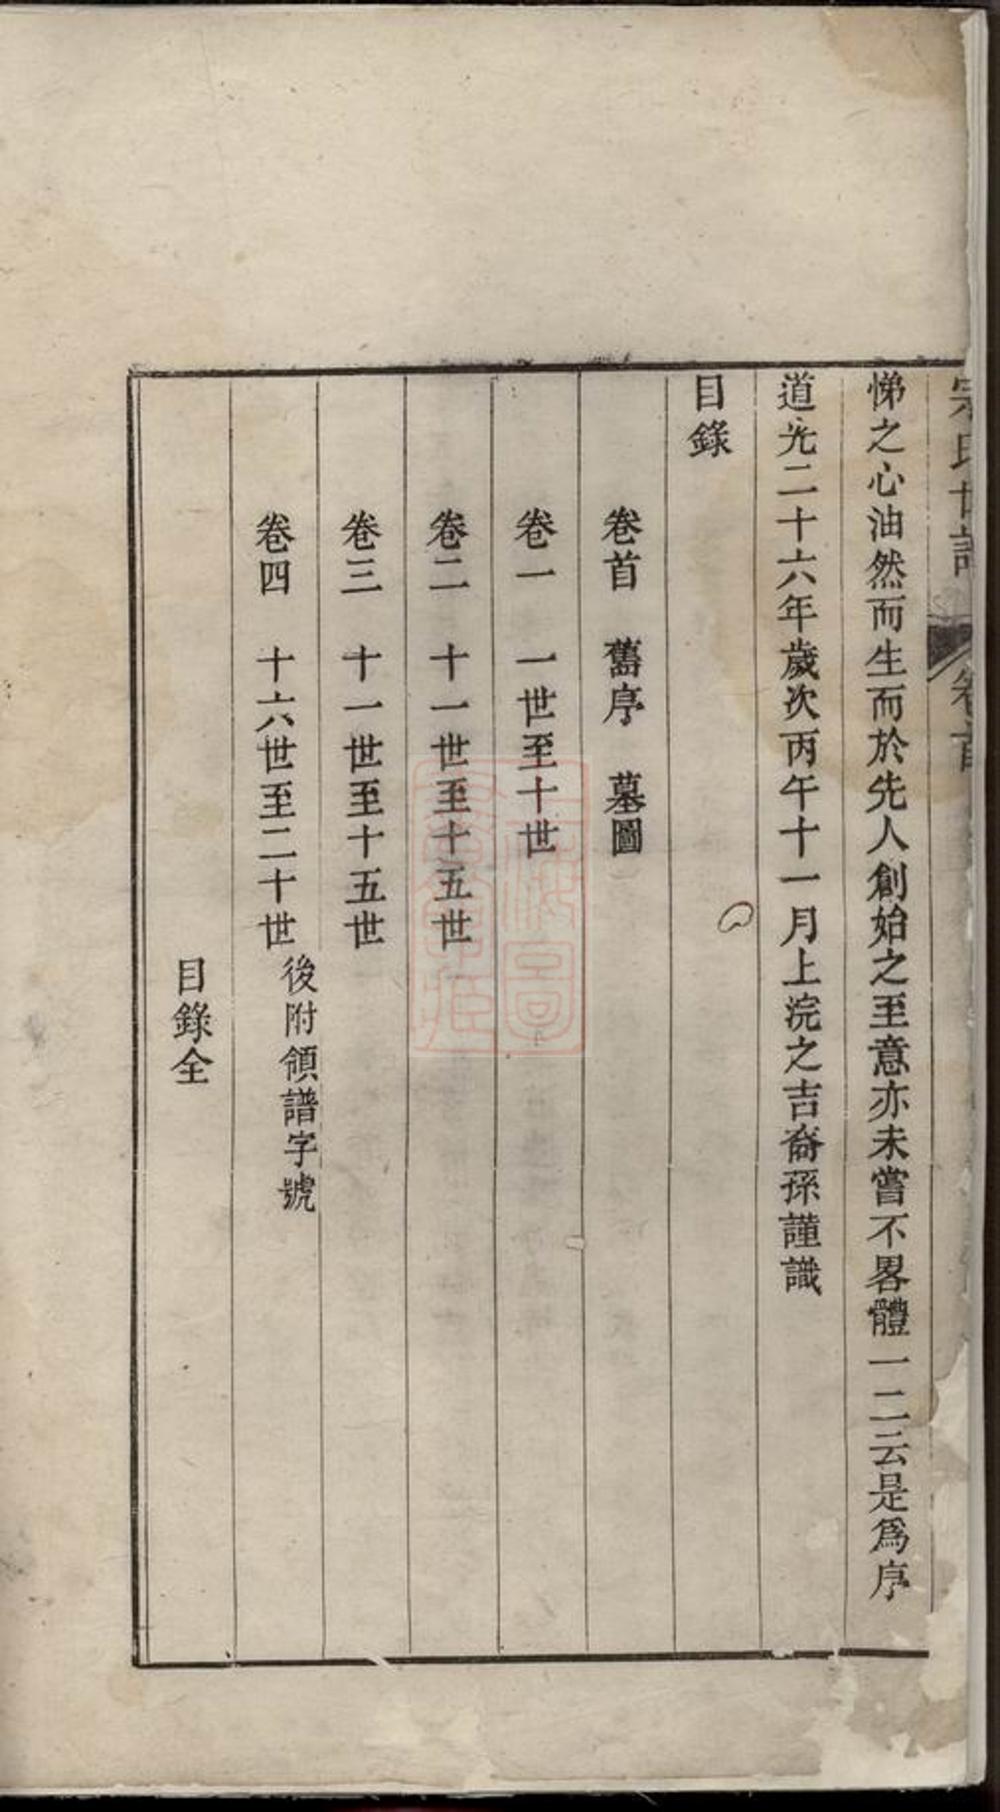 氏世譜 卷首
悌之心油然而生而於先人創始之至意亦未嘗不畧體一二云是爲序
道光二十六年歲次丙午十一月上浣之吉裔孫謹識
目錄
卷首 舊序 墓圖
卷一 一世至十世
卷二 十一世至十五世
卷三 十一世至十五世
卷四 十六世至二十世 後附領譜字號
目錄全